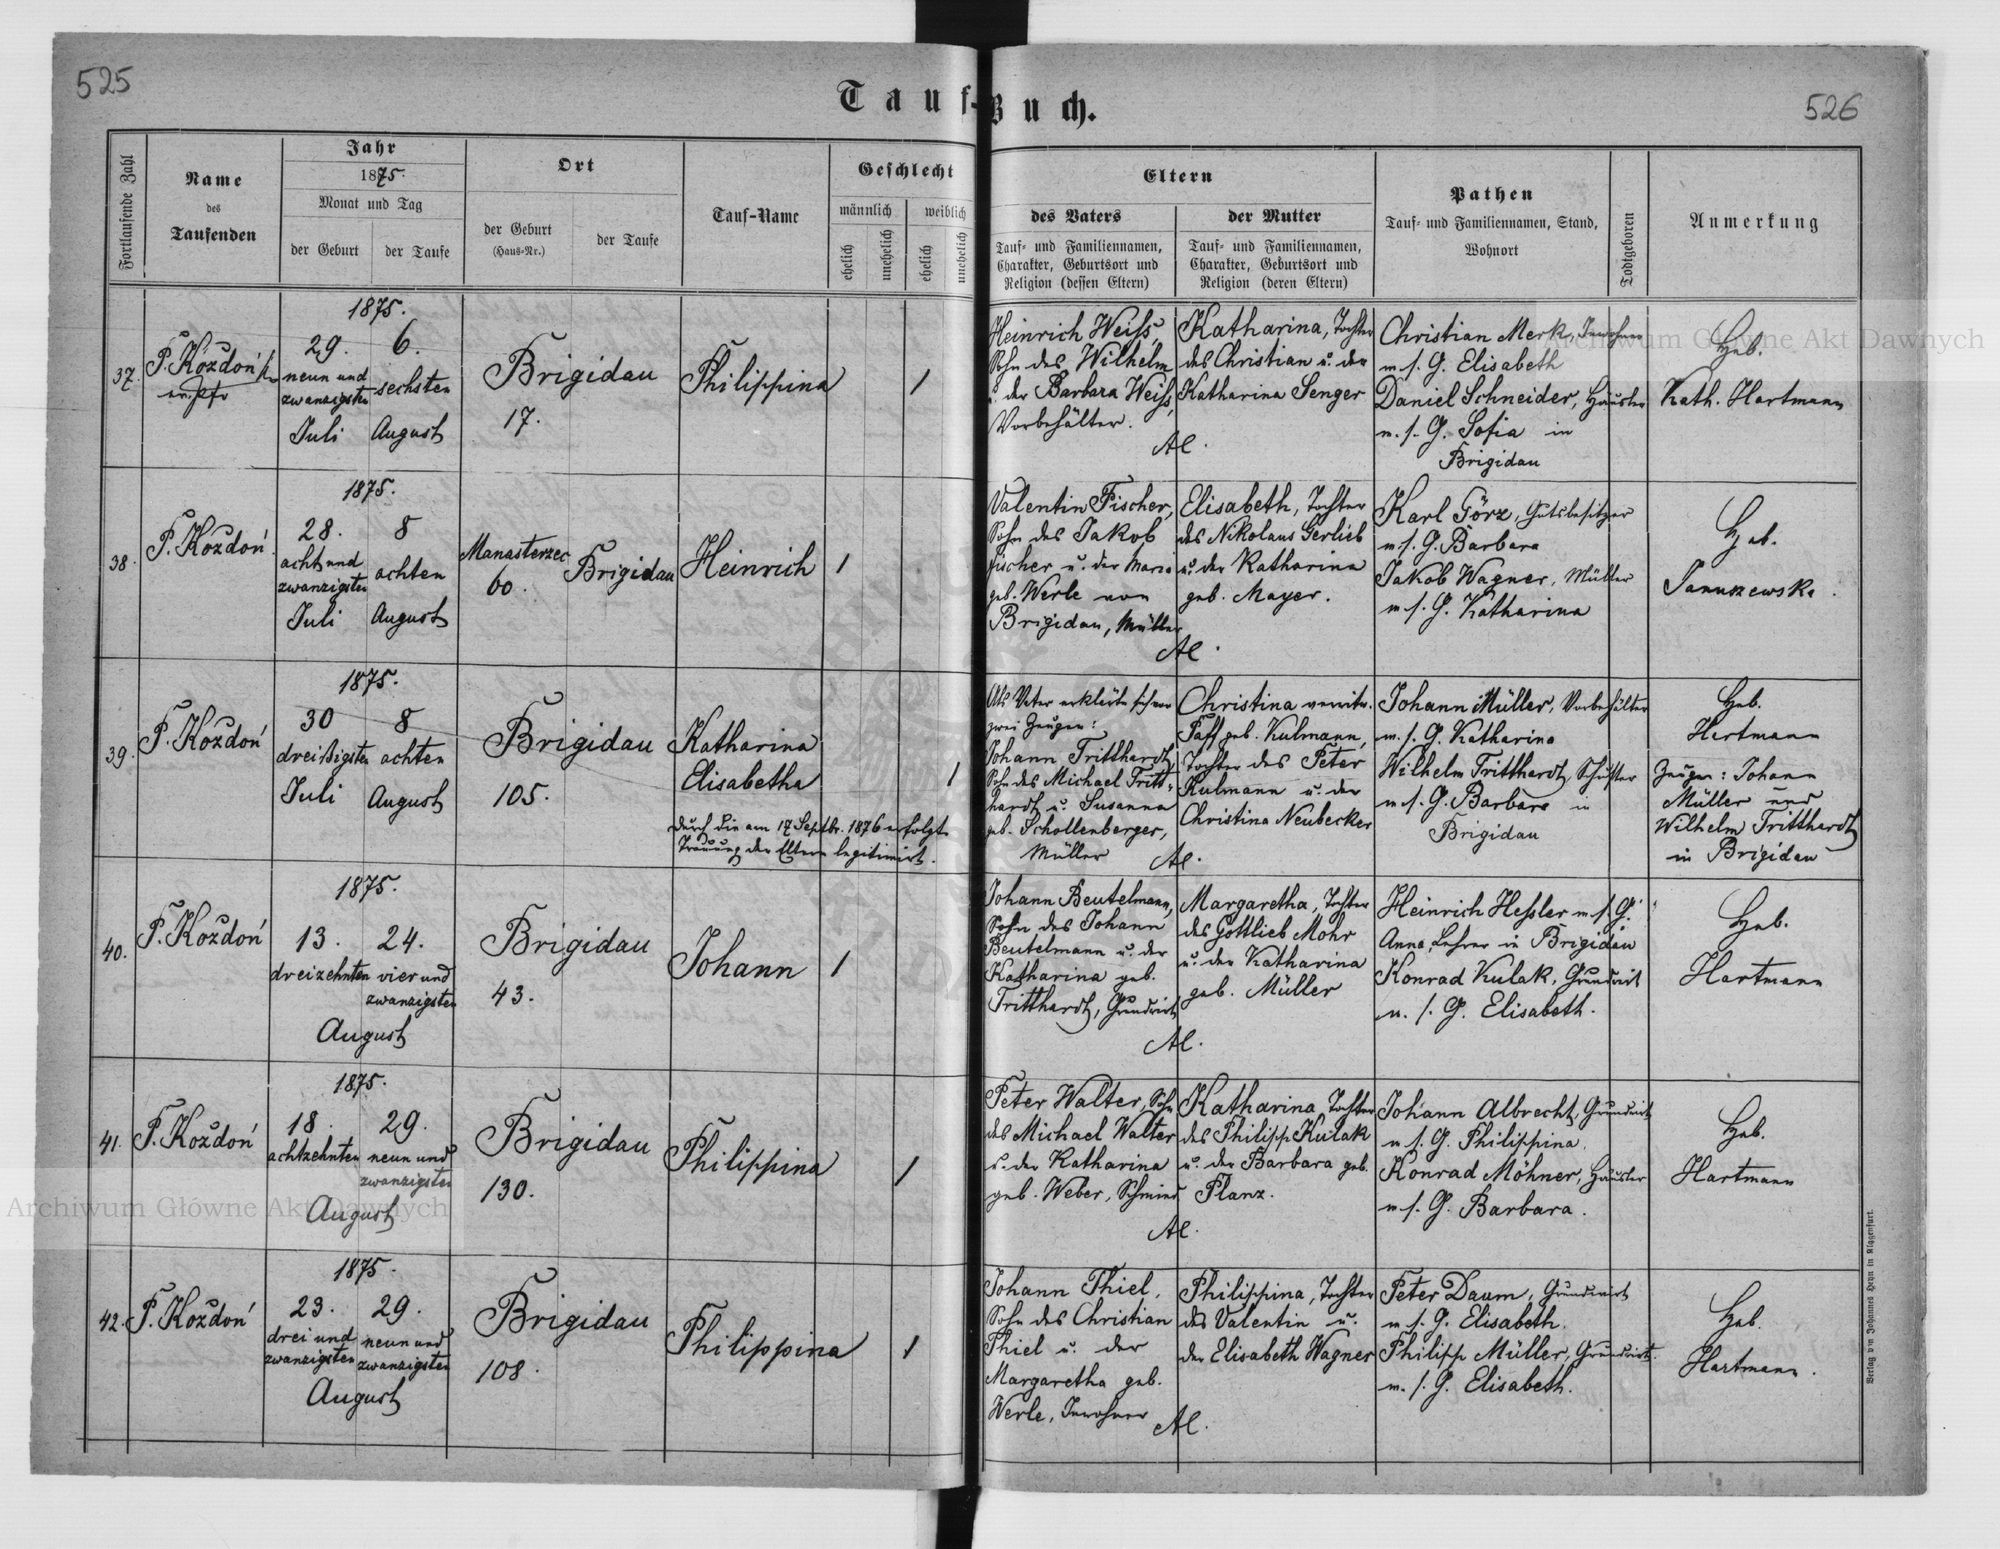 525
526
Tauf-Buch.
Fortlaufende Zahl
Name
des
Taufenden
Jahr
1875.
Monat und Tag
der Geburt
der Taufe
Ort
der Geburt
(Haus-Nr.)
der Taufe
Tauf-Name
Geschlecht
männlich
weiblich
ehelich
unehelich
ehelich
unehelich
Eltern
des Vaters
Tauf- und Familiennamen,
Charakter, Geburtsort und
Religion (dessen Eltern)
der Mutter
Tauf- und Familiennamen,
Charakter, Geburtsort und
Religion (deren Eltern)
Pathen
Tauf- und Familiennamen, Stand,
Wohnort
Todtgeboren
Anmerkung
37.
P. Kozdoń
1875.
29.
neun und
zwanzigsten
Juli
6.
sechsten
August
Brigidau
17.
Philippina
1
Heinrich Weiss,
Sohn des Wilhelm
u. der Barbara Weiss,
Vorbehälter.
Katharina, Tochter
des Christian u. der
Katharina Senger
Al.
Christian Merk, Inwohner
m. s. G. Elisabeth
Daniel Schneider, Häusler
m. s. G. Sofia in
Brigidau
Heb.
Kath. Hartmann
38.
P. Kozdoń
1875.
28.
acht und
zwanzigsten
Juli
8
achten
August
Manasterzec
60.
Brigidau
Heinrich
1
Valentin Fischer,
Sohn des Jakob
Fischer u. der Maria
geb. Werle von
Brigidau, Müller
Elisabeth, Tochter
des Nikolaus Gerlieb
u. der Katharina
geb. Mayer.
Al.
Karl Görz, Gutsbesitzer
m. s. G. Barbara
Jakob Wagner, Müller
m. s. G. Katharina
Heb.
Januszewska.
39.
P. Kozdoń
1875.
30
dreißigsten
Juli
8
achten
August
Brigidau
105.
Katharina
Elisabetha
1
Durch die am 17 Septbr. 1876 erfolgte
Trauung der Eltern legitimirt.
Als Vater erklärte sich vor
zwei Zeugen:
Johann Tritthardt
Sohn des Michael Tritt-
hardt u. Susanna
geb. Schollenberger,
Müller
Christina verwitw.
Faff geb. Kulmann,
Tochter des Peter
Kulmann u. der
Christina Neubecker
Al.
Johann Müller, Vorbehälter
m. s. G. Katharina
Wilhelm Tritthardt, Schuster
m. s. G. Barbara in
Brigidau
Heb.
Hartmann
Zeugen: Johann
Müller und
Wilhelm Tritthardt
in Brigidau
40.
P. Kozdoń
1875.
13.
dreizehnten
24.
vier und
zwanzigsten
August
Brigidau
43.
Johann
1
Johann Beutelmann,
Sohn des Johann
Beutelmann u. der
Katharina geb.
Tritthardt, Grundwirt
Margaretha, Tochter
des Gottlieb Mohr
u. der Katharina
geb. Müller
Al.
Heinrich Hessler m. s. G.
Anna, Lehrer in Brigidau
Konrad Kulak, Grundwirt
m. s. G. Elisabeth.
Heb.
Hartmann
41.
P. Kozdoń
1875.
18.
achtzehnten
29.
neun und
zwanzigsten
August
Brigidau
130.
Philippina
1
Peter Walter, Sohn
des Michael Walter
u. der Katharina
geb. Weber, Schmied
Katharina Tochter
des Philipp Kulak
u. der Barbara geb.
Planz.
Al.
Johann Albrecht, Grundwirt
m. s. G. Philippina.
Konrad Möhner, Häusler
m. s. G. Barbara.
Heb.
Hartmann
42.
P. Kozdoń
1875.
23.
drei und
zwanzigsten
29.
neun und
zwanzigsten
August
Brigidau
108.
Philippina
1
Johann Thiel,
Sohn des Christian
Thiel u. der
Margaretha geb.
Werle, Inwohner
Philippina, Tochter
des Valentin u.
der Elisabeth Wagner
Al.
Peter Daum, Grundwirt
m. s. G. Elisabeth.
Philipp Müller, Grundwirt.
m. s. G. Elisabeth.
Heb.
Hartmann.
Verlag von Johannes Heyn in Klagenfurt.
Archiwum Główne Akt Dawnych
Archiwum Główne Akt Dawnych